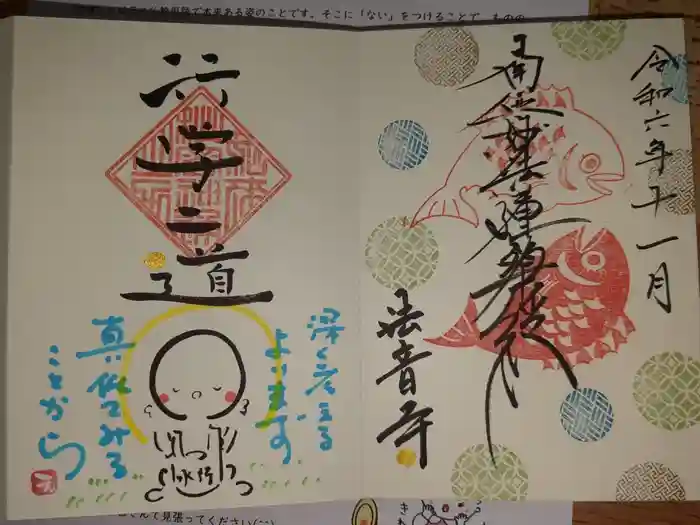 本来ある姿のことです。そこに「ない」をつけることで、ものの
令和六年十一月
南無妙法蓮華経
法音寺
行学二道
深く考える
よりまず
真似てみる
ことから
見張ってください(^^)